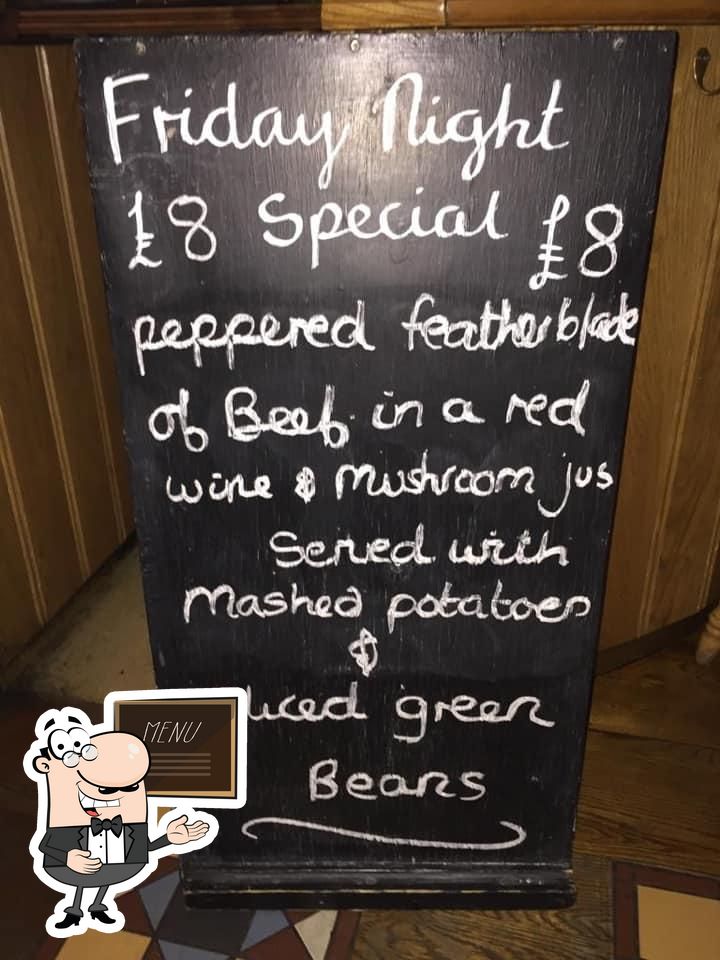 Friday Night
£8 Special £8
peppered featherblade
of Beef in a red
wine & Mushroom jus
Served with
Mashed potatoes
&
green
Beans
MENU